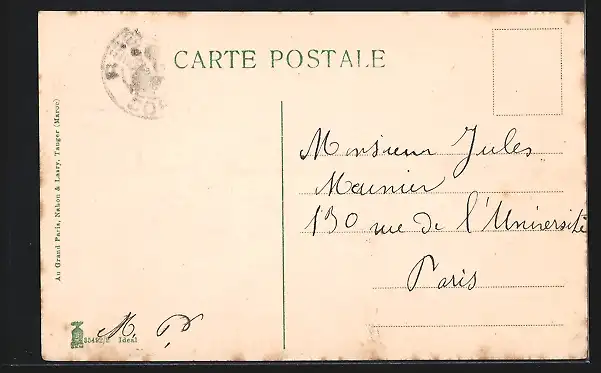 CARTE POSTALE
Au Grand Paris, Nahon & Lasry, Tanger (Maroc)
Monsieur Jules
Meunier
130 rue de l'Université
Paris
M. P.
Ideal